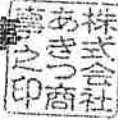 株式会社
あきつ商
事之印